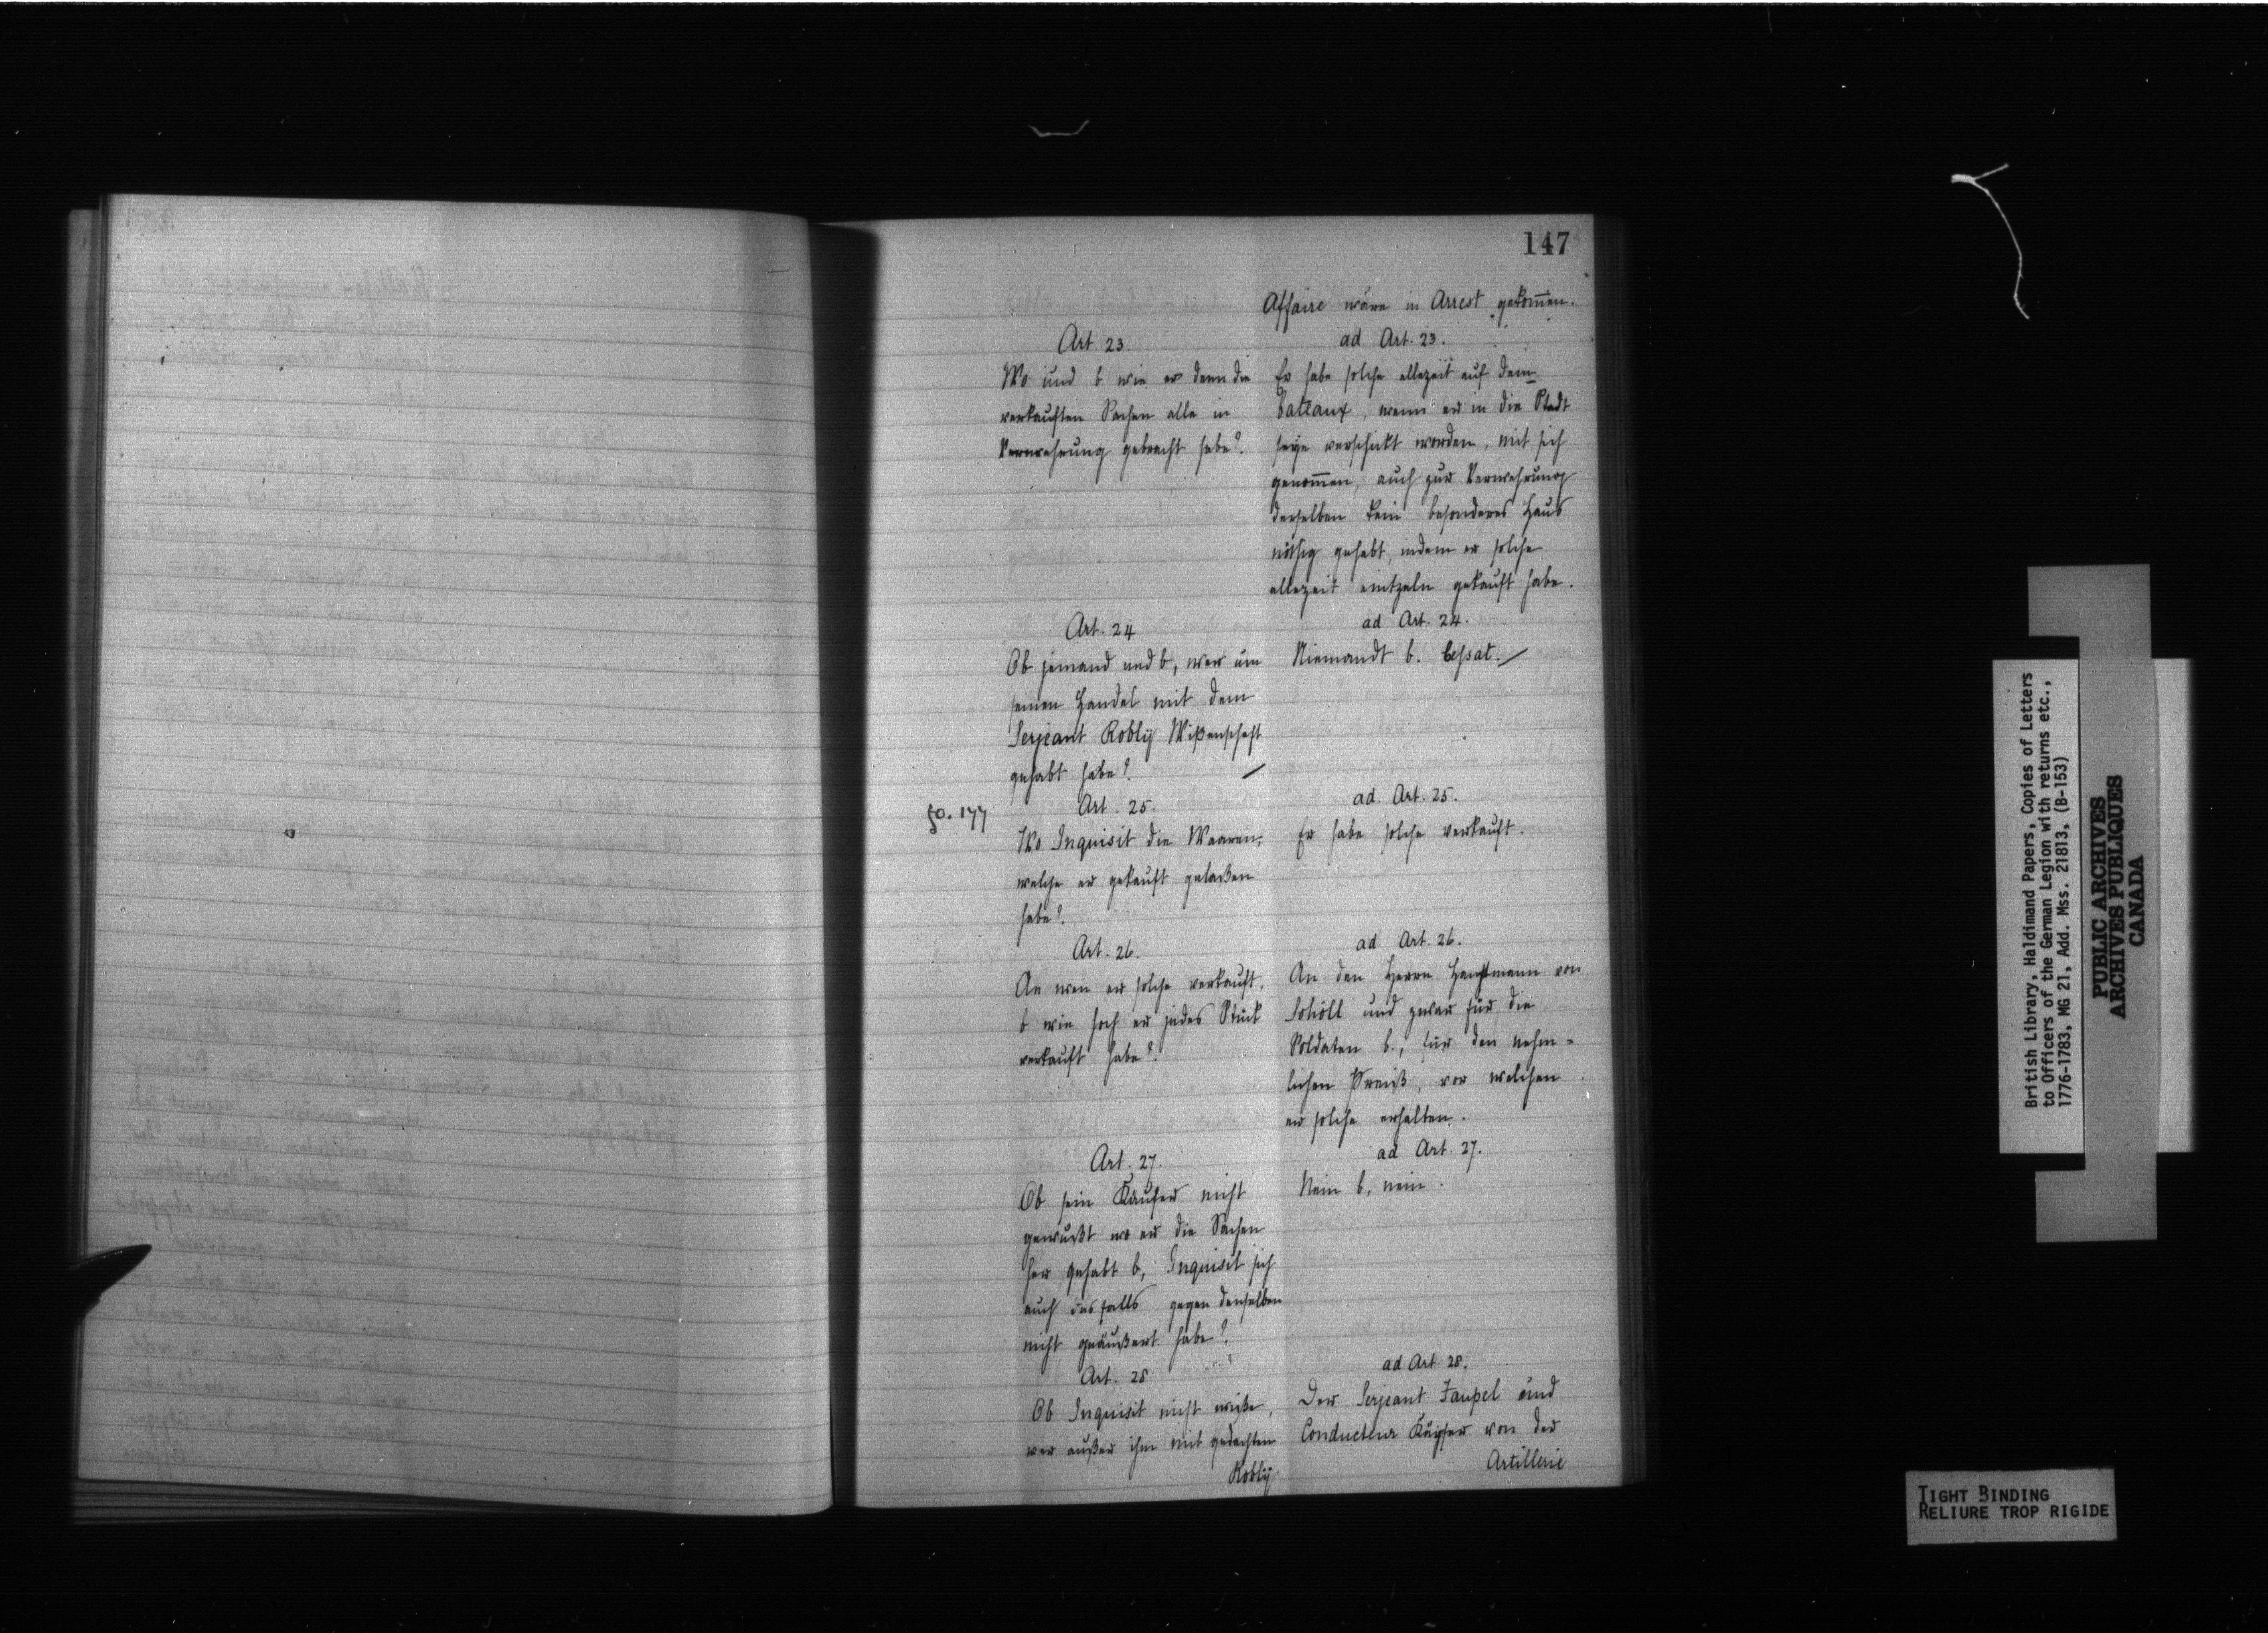 147
Affaire wäre in Arrest gekom̅en.
Art. 23.
Wo und b wie er denn die
verkauften Sachen alle in
Verwahrung gebracht habe?
ad Art. 23.
Er habe solche allezeit auf dem
bateaux, wenn er in die Stadt
seye verschickt worden, mit sich
genom̅en, auch zur Verwahrung
derselben kein besonderes Haus
nöthig gehabt, indem er solche
allezeit eintzeln gekauft habe.
Art. 24
Ob jemand und b, wer um
seinen Handel mit dem
Serjeant Roblÿ Wißenschaft
gehabt habe?
ad Art. 24.
Niemandt b. cessat.
fo. 177
Art. 25.
Wo Inquisit die Waaren,
welche er gekauft gelaßen
habe?
ad. Art. 25.
Er habe solche verkauft.
Art. 26.
An wen er solche verkauft,
b wie hoch er jedes Stück
verkauft habe?
ad Art. 26.
An den Herrn Hauptmann von
Schöll und zwar für die
Soldaten b., für den nehm=
lichen Preiß, vor welchen
er solche erhalten.
Art. 27.
Ob sein Käufer nicht
gewußt wo er die Sachen
her gehabt b, Inquisit sich
auch desfalls gegen denselben
nicht geäußert habe?
ad Art. 27.
Nein b, nein.
Art. 28
Ob Inquisit nicht wiße,
wer außer ihm mit gedachten
Roblÿ
ad Art. 28.
Der Serjeant Faupel und
Conducteur Käÿser von der
Artillerie
British Library, Haldimand Papers, Copies of Letters
to Officers of the German Legion with returns etc.,
1776-1783, MG 21, Add. Mss. 21813, (B-153)
PUBLIC ARCHIVES
ARCHIVES PUBLIQUES
CANADA
TIGHT BINDING
RELIURE TROP RIGIDE